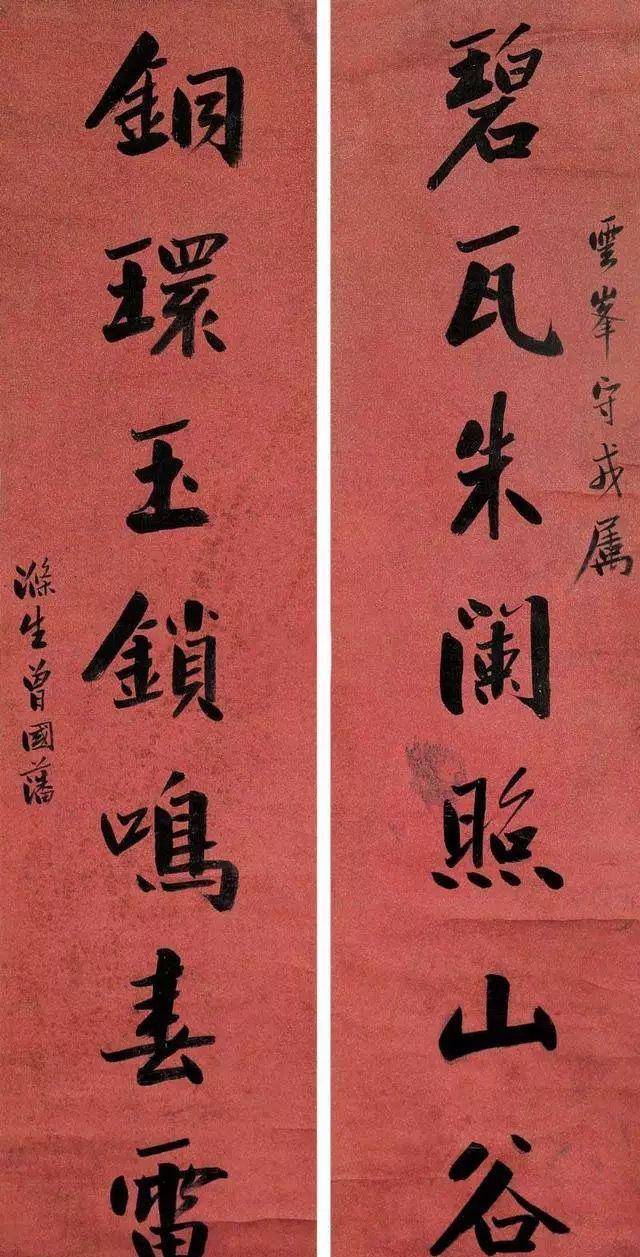 雲峯守戎属
碧瓦朱阑照山谷
銅環玉鎖鳴春雷
滌生曾國藩